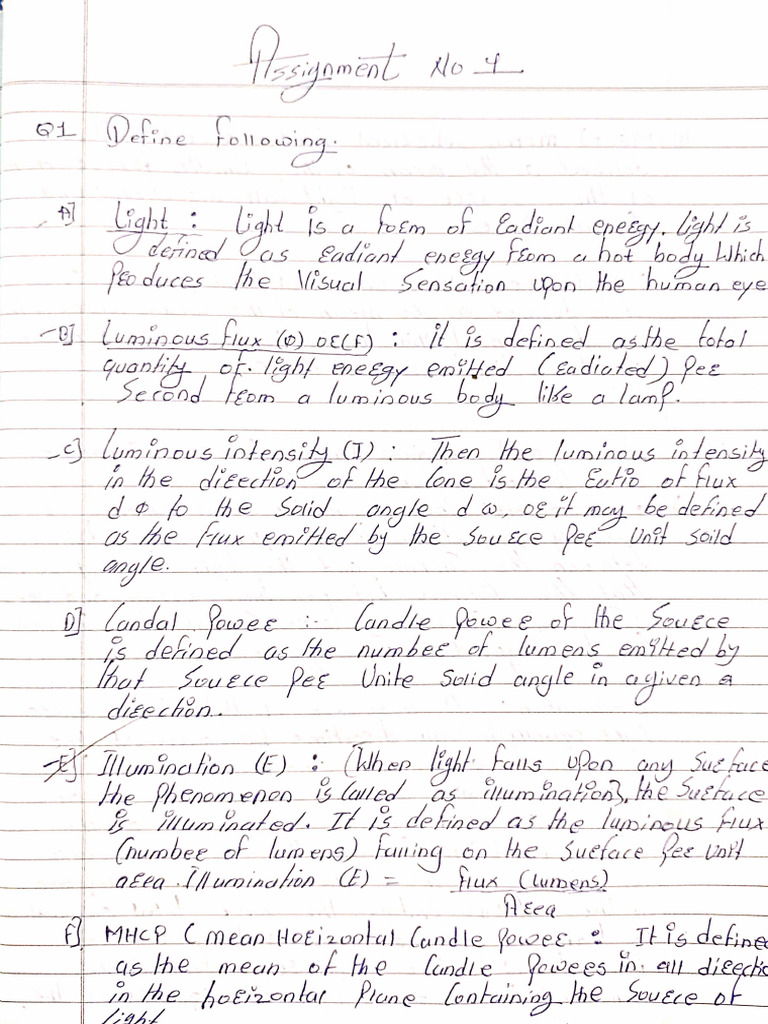 Assignment No 1
Q1 Define following.
A] Light : Light is a form of radiant energy. Light is
defined as radiant energy from a hot body which
produces the visual sensation upon the human eye
B] Luminous flux (Φ) or (F) : it is defined as the total
quantity of light energy emitted (radiated) per
second from a luminous body like a lamp.
C] Luminous intensity (I) : Then the luminous intensity
in the direction of the cone is the ratio of flux
dΦ to the solid angle dω, or it may be defined
as the flux emitted by the source per unit soild
angle.
D] Candal Power :- Candle power of the source
is defined as the number of lumens emitted by
that source per unite solid angle in a given a
direction.
E] Illumination (E) : (When light falls upon any surface
the phenomenon is called as illumination), the surface
is illuminated. It is defined as the luminous flux
(number of lumens) falling on the surface per unit
area. Illumination (E) = flux (lumens)
Area
F] MHCP (mean Horizontal Candle Power : It is define
as the mean of the candle powers in all directi
in the horizontal plane containing the source of
light